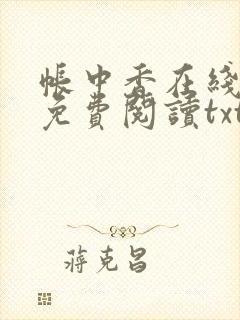 帳中香在綫
免費閱讀txt
蔣克昌